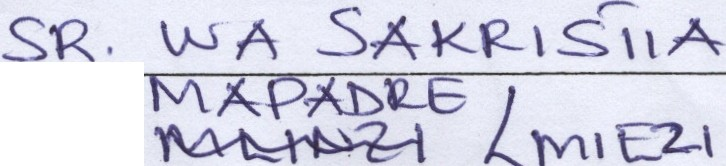 SR. WA SAKRISTIA
MAPADRE
MLINZI / MIEZI